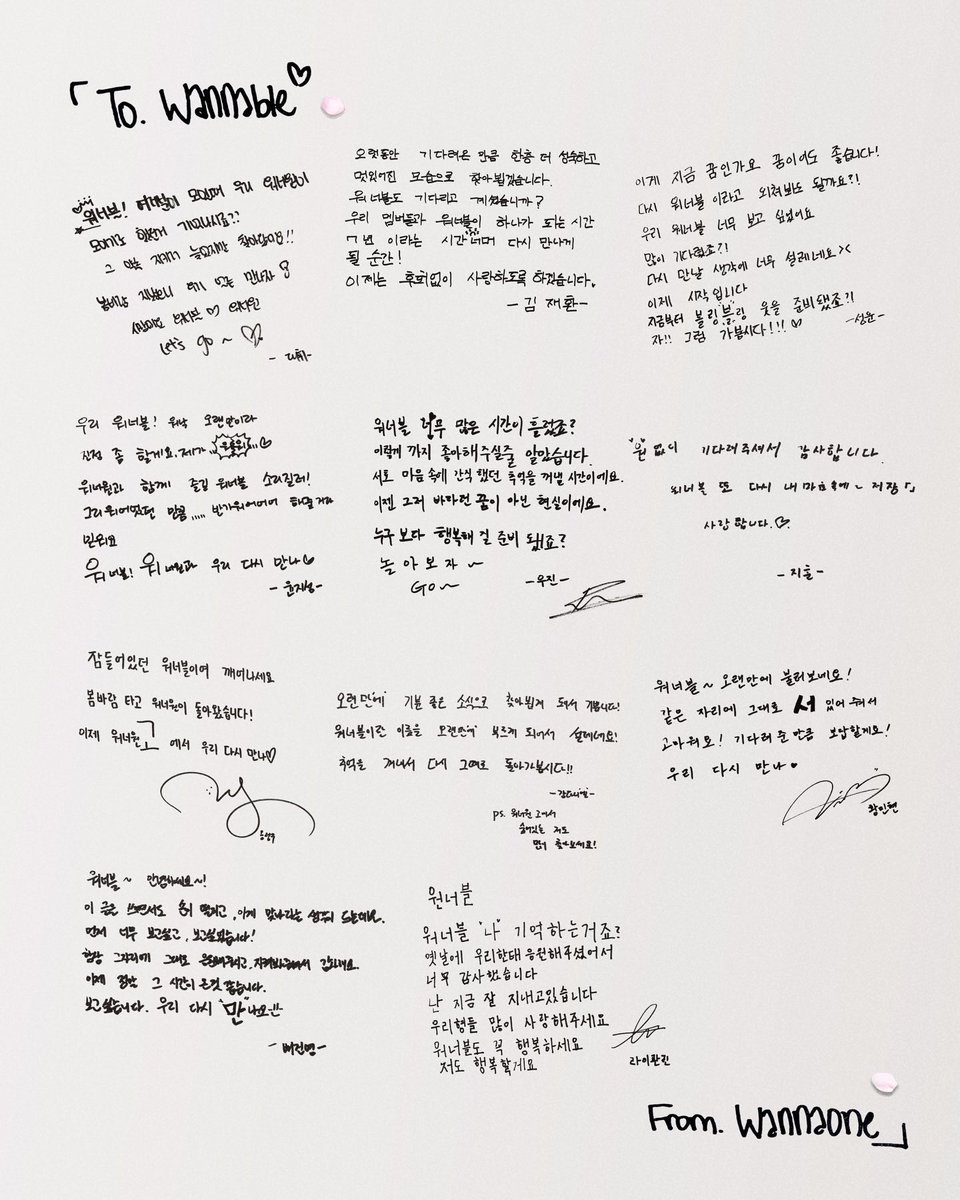 「To. Wannable♡
워너블! 여러분이 모여서 우리 워너원이
그 약속 지키러 늦었지만 찾아왔어요!!
Let's go ~ ♡
오랫동안 기다려온 만큼 한층 더 성숙하고
멋있어진 모습으로 찾아뵙겠습니다.
워너블도 기다리고 계셨습니까?
우리 멤버들과 워너블이 하나가 되는 시간
7년 이라는 시간 너머 다시 만나게
될 순간!
이제는 후회없이 사랑하도록 하겠습니다.
-김재환-
이게 지금 꿈인가요 꿈이어도 좋습니다!
다시 워너블이라고 외쳐봐도 될까요?!
우리 워너블 너무 보고 싶었어요
많이 기다렸죠?!
다시 만날 생각에 너무 설레네요><
이제 시작입니다
지금부터 블링"블"링 웃을 준비됐죠?!
자!! 그럼 가봅시다!!! ♡
-성운-
우리 워너블! 워낙 오랜만이라
진정 좀 할게요. 제가
워너원과 함께 즐길 워너블 소리질러!
믿워요
워너블! 워너원과 우리 다시 만나♡
-윤지성-
워너블 너무 많은 시간이 흘렀죠?
이렇게 까지 좋아해주실줄 알았습니다.
서로 마음 속에 간직했던 추억을 꺼낼 시간이에요.
이젠 그저 바라던 꿈이 아닌 현실이에요.
누구보다 행복해 질 준비 됐죠?
놀아보자 ~
GO~
-우진-
"원"없이 기다려주셔서 감사합니다.
워너블 또 다시 내 마음속에~ 저장
사랑합니다.♡
-지훈-
잠들어있던 워너블이여 깨어나세요
봄바람 타고 워너원이 돌아왔습니다!
이제 워너원고 에서 우리 다시 만나♡
오랜만에 기분 좋은 소식으로 찾아뵙게 돼서 기쁩니다!
워너블이란 이름을 오랜만에 부르게 되어서 설레네요!
추억을 꺼내서 다시 그때로 돌아가봅시다!!
-강다니엘-
ps. 워너원고에서
숨어있는 저도
많이 찾아보세요!
워너블~ 오랜만에 불러보네요!
같은 자리에 그대로 서 있어 줘서
고마워요! 기다려준 만큼 보답할게요!
우리 다시 만나♡
황민현
워너블~ 안녕하세요~!
이 글을 쓰면서도 손이 떨리고, 이게 맞나라는 생각이 드는데요.
먼저 너무 보고싶고, 보고싶었습니다!
항상 그자리에 그대로 응원해주시고, 지켜봐주셔서 감사해요.
이제 정말 그 시간이 온것 같습니다.
보고싶습니다. 우리 다시 "만"나요!!
-배진영-
원너블
워너블 "나" 기억하는거죠?
옛날에 우리한태 응원해주셨어서
너무 감사했습니다
난 지금 잘 지내고있습니다
우리형들 많이 사랑해주세요
워너블도 꼭 행복하세요
저도 행복할게요
라이관린
From. Wannaone」